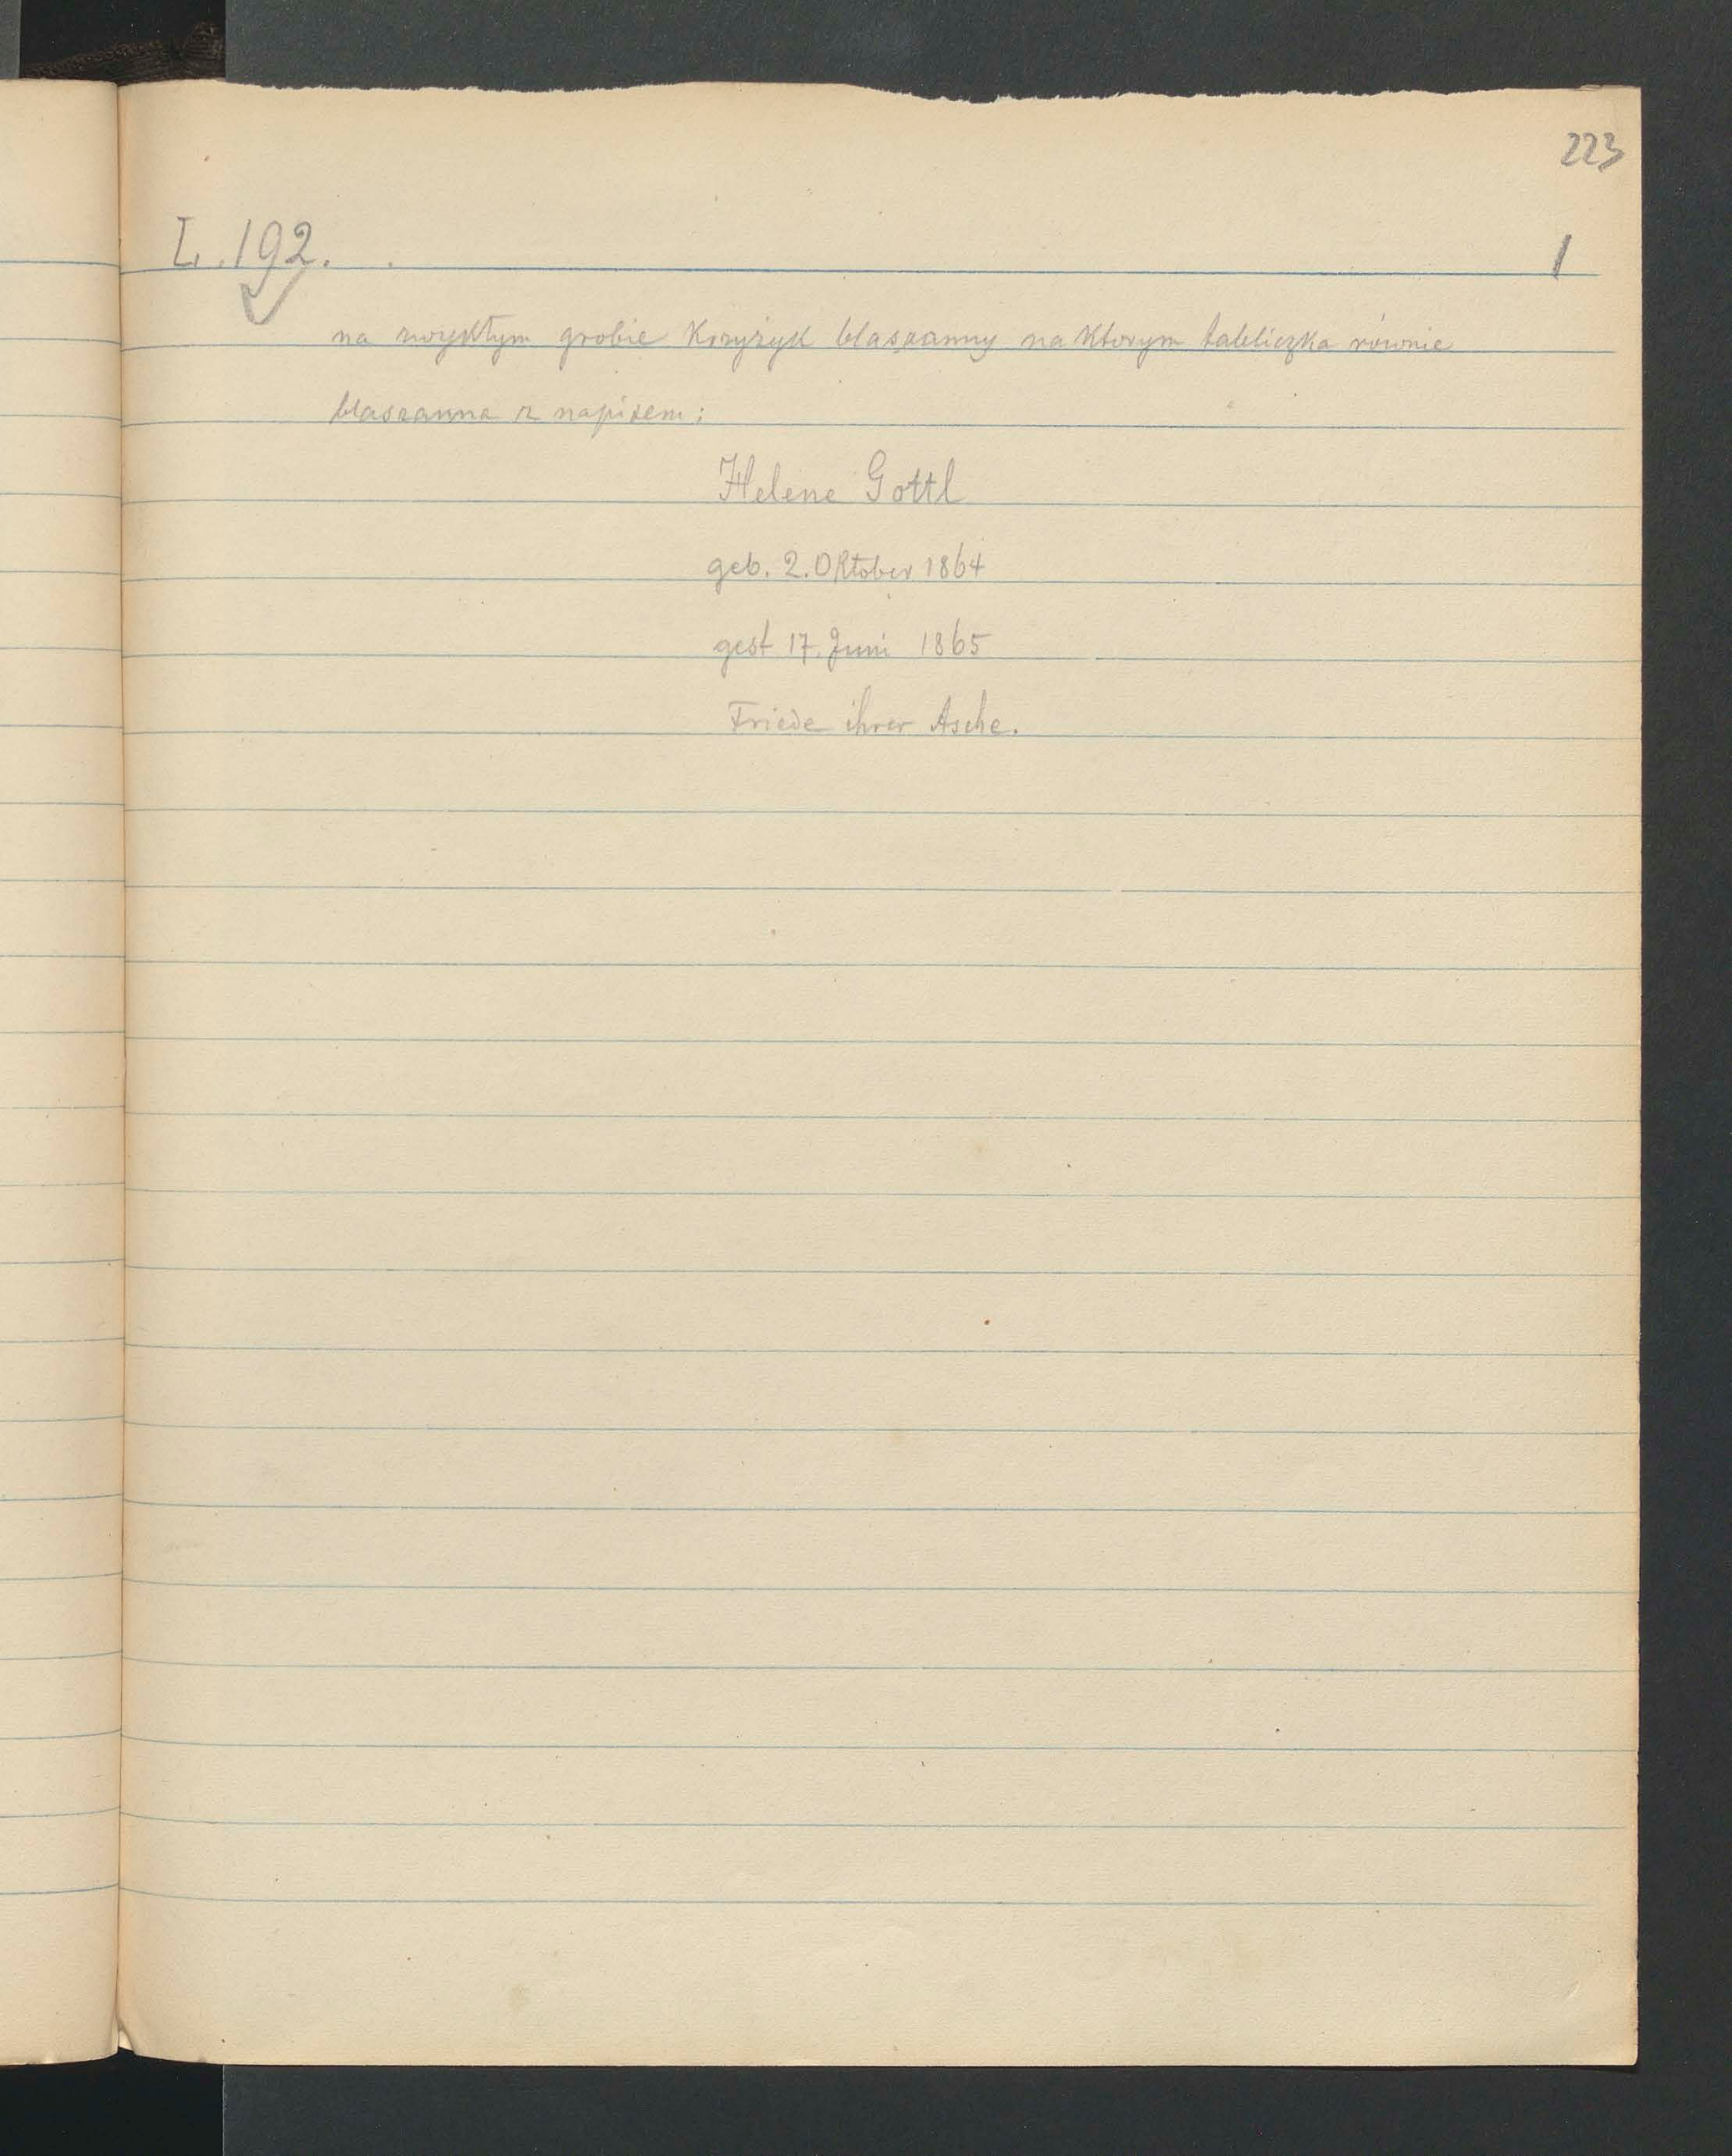 223
L. 192. 1
na zwykłym grobie Krzyżyk blaszanny na Ktorym tabliczka równie
blaszanna z napisem:
Helene Gottl
geb. 2. Oktober 1864
gest 17. Juni 1865
Friede ihrer Asche.